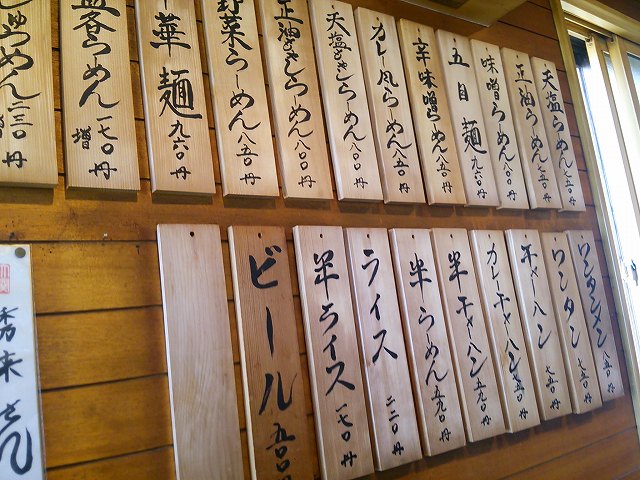 天塩らーめん 七五〇円
正油らーめん 七五〇円
味噌らーめん 八〇〇円
五目麺 九六〇円
辛味噌らーめん 八五〇円
カレー風らーめん 八五〇円
天塩ときしらーめん 八〇〇円
正油ときしらーめん 八〇〇円
野菜らーめん 八五〇円
華麺 九六〇円
らーめん 一七〇円増
らーめん 二三〇円
ワンタンメン 八五〇円
ワンタン 七五〇円
チャーハン 七五〇円
カレーチャーハン 七五〇円
半チャーハン 五九〇円
半らーめん 五九〇円
ライス 二二〇円
半ライス 一七〇円
ビール 五〇円